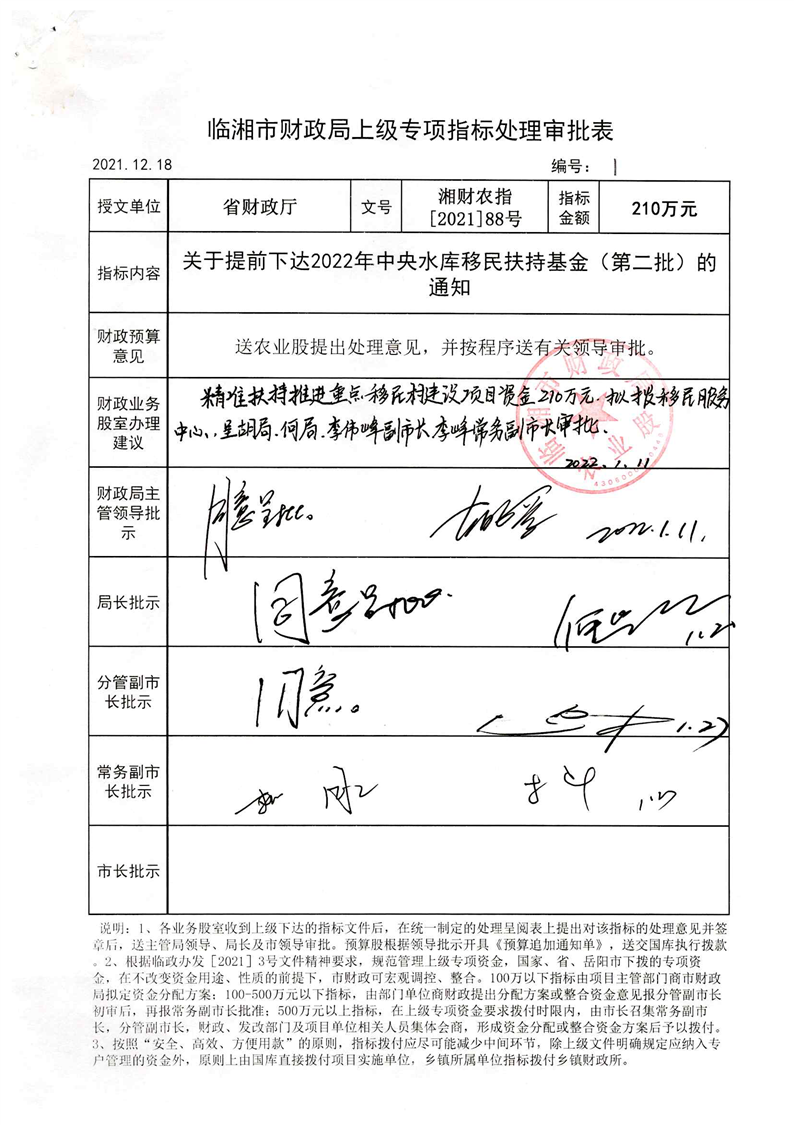 临湘市财政局上级专项指标处理审批表
2021.12.18
编号：1
授文单位
省财政厅
文号
湘财农指
[2021]88号
指标
金额
210万元
指标内容
关于提前下达2022年中央水库移民扶持基金（第二批）的
通知
财政预算
意见
送农业股提出处理意见，并按程序送有关领导审批。
财政业务
股室办理
建议
精准扶持推进重点移民村建设项目资金210万元.拟拨移民服务
中心,呈胡局.何局.李伟峰副市长.李峰常务副市长审批.
2022.1.11
临湘市财政局
农业股
财政局主
管领导批
示
同意呈批。
2022.1.11.
局长批示
同意呈批.
1.21
分管副市
长批示
同意。
1.27
常务副市
长批示
市长批示
说明：1、各业务股室收到上级下达的指标文件后，在统一制定的处理呈阅表上提出对该指标的处理意见并签
章后，送主管局领导、局长及市领导审批。预算股根据领导批示开具《预算追加通知单》，送交国库执行拨款
。2、根据临政办发［2021］3号文件精神要求，规范管理上级专项资金，国家、省、岳阳市下拨的专项资
金，在不改变资金用途、性质的前提下，市财政可宏观调控、整合。100万以下指标由项目主管部门商市财政
局拟定资金分配方案：100-500万元以下指标，由部门单位商财政提出分配方案或整合资金意见报分管副市长
初审后，再报常务副市长批准：500万元以上指标，在上级专项资金要求拨付时限内，由市长召集常务副市
长，分管副市长，财政、发改部门及项目单位相关人员集体会商，形成资金分配或整合资金方案后予以拨付。
3、按照“安全、高效、方便用款”的原则，指标拨付应尽可能减少中间环节，除上级文件明确规定应纳入专
户管理的资金外，原则上由国库直接拨付项目实施单位，乡镇所属单位指标拨付乡镇财政所。